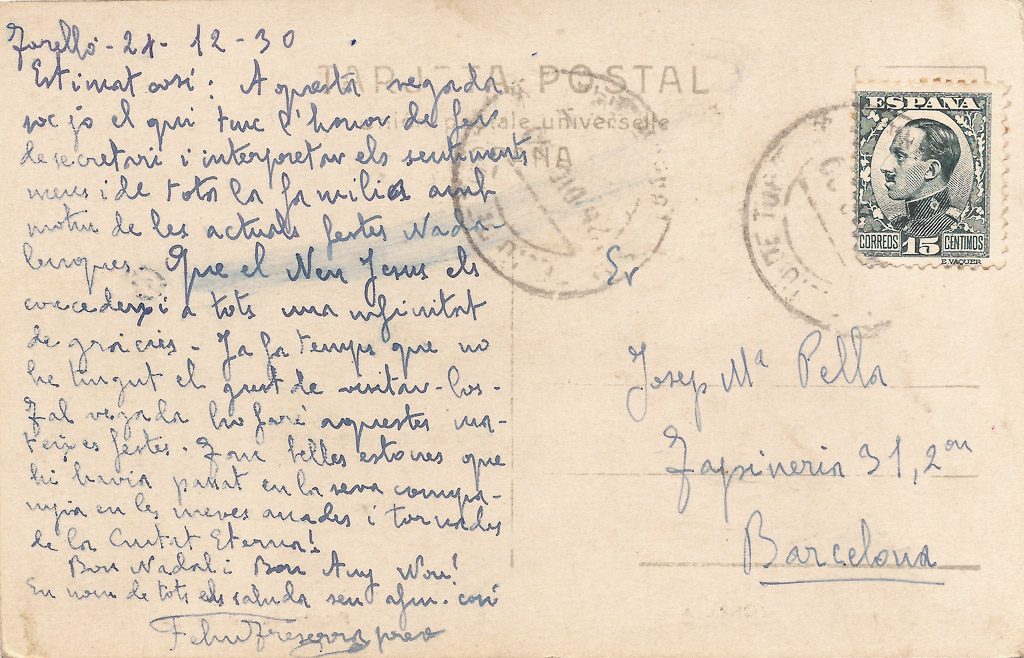 Torelló - 24 - 12 - 30
Estimat cosí: Aquesta vegada
soc jo el qui tinc l'honor de fer
de secretari i interpretar els sentiments
meus i de tota la familia amb
motiu de les actuals festes Nada-
lenques. Que el Nen Jesus els
concedeixi a tots una infinitat
de gracies. Ja fa temps que no
he tingut el gust de visitar-los.
Tal vegada ho faré aquestes ma-
teixes festes. Tan belles estones que
hi havia passat en la seva compa-
nyia en les meves anades i tornades
de la Ciutat Eterna!
Bon Nadal i Bon Any Nou!
En nom de tots els saluda seu afm. cosí
TARJETA POSTAL
universelle
ESPAÑA
ESPAÑA
CORREOS 15 CENTIMOS
E. VAQUER
Sr
Josep Mª Pella
Tapineria 31, 2on
Barcelona